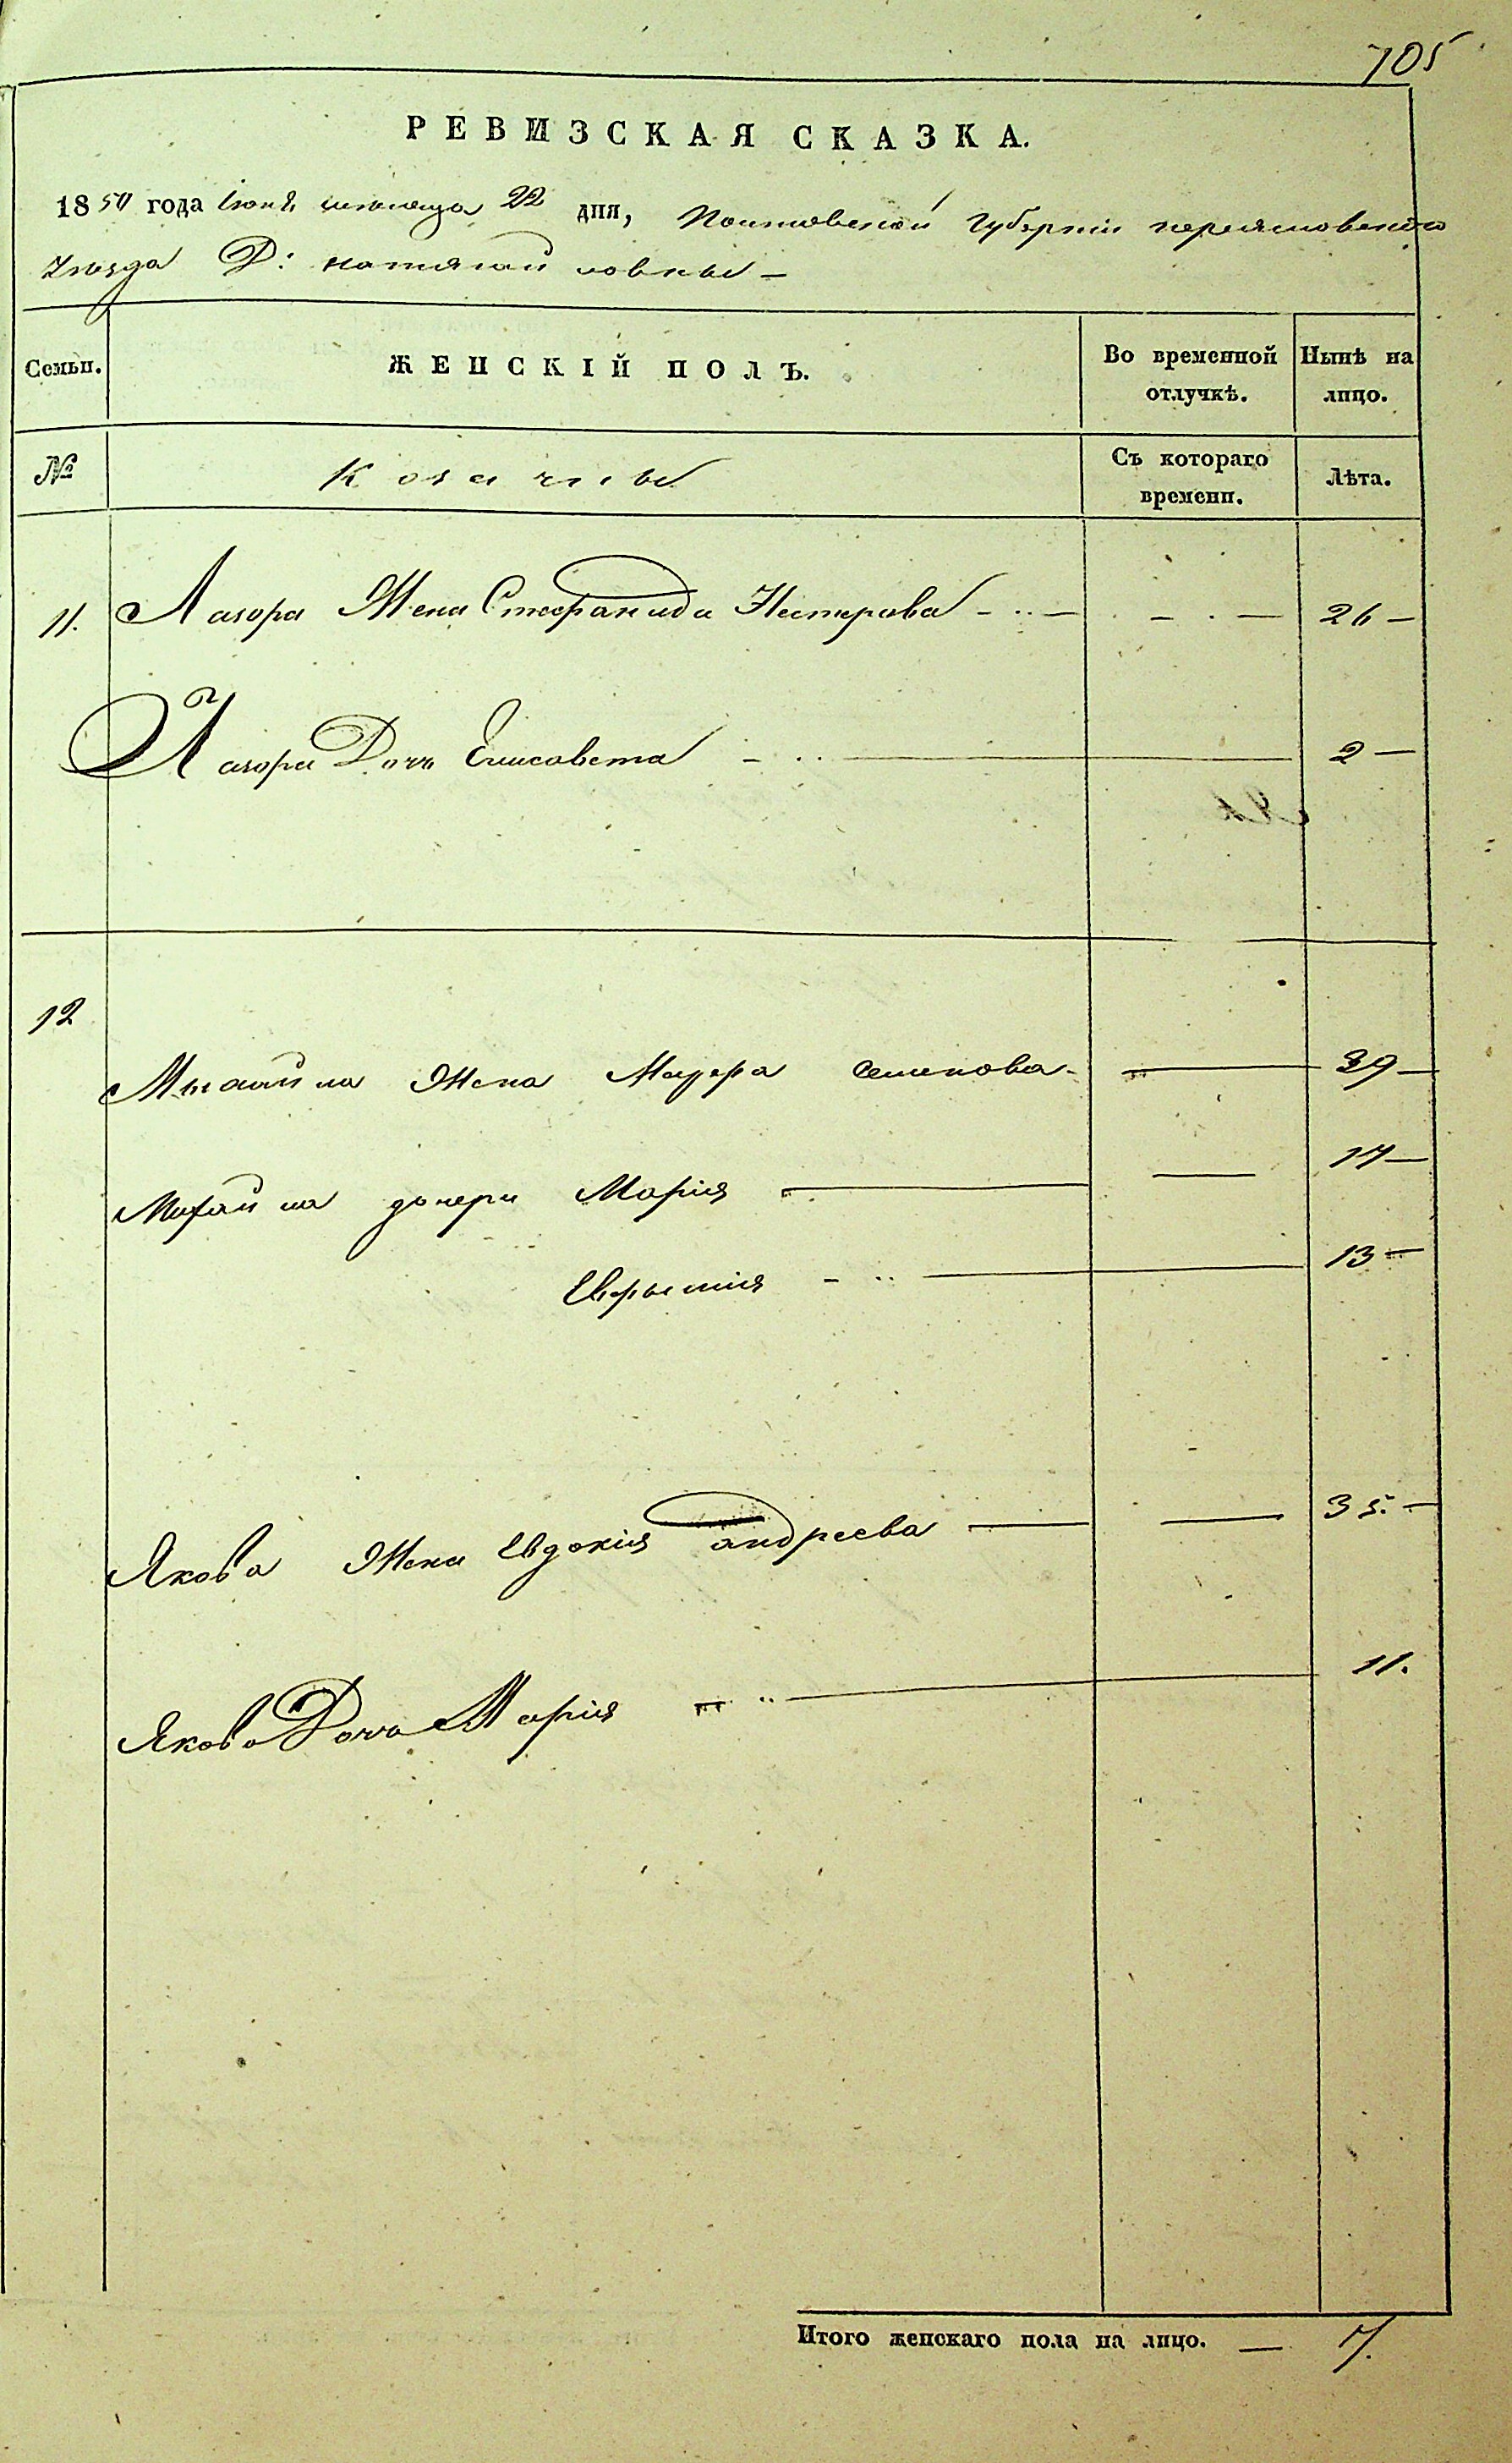 705
РЕВИЗСКАЯ СКАЗКА.
1850 года Іюня месяца 22 дня, Полтавской Губерніи переяславского
уезда Д:
Семьи. ЖЕНСКІЙ ПОЛЪ. Во временной отлучкѣ. Нынѣ на лицо.
№ Козачые Съ котораго времени. Лѣта.
11. Лазора Жена Стефанида Нестерова — 26 —
Лазора Дочь Елисавета — 2 —
12
Михайила Жена Марфа Семенова — 39 —
Михайила дочери Марія — 17 —
Евфымия — 13 —
Якова Жена Евдокия андреева — 35. —
Якова Дочь Мария — 11.
Итого женскаго пола на лицо. — 7.